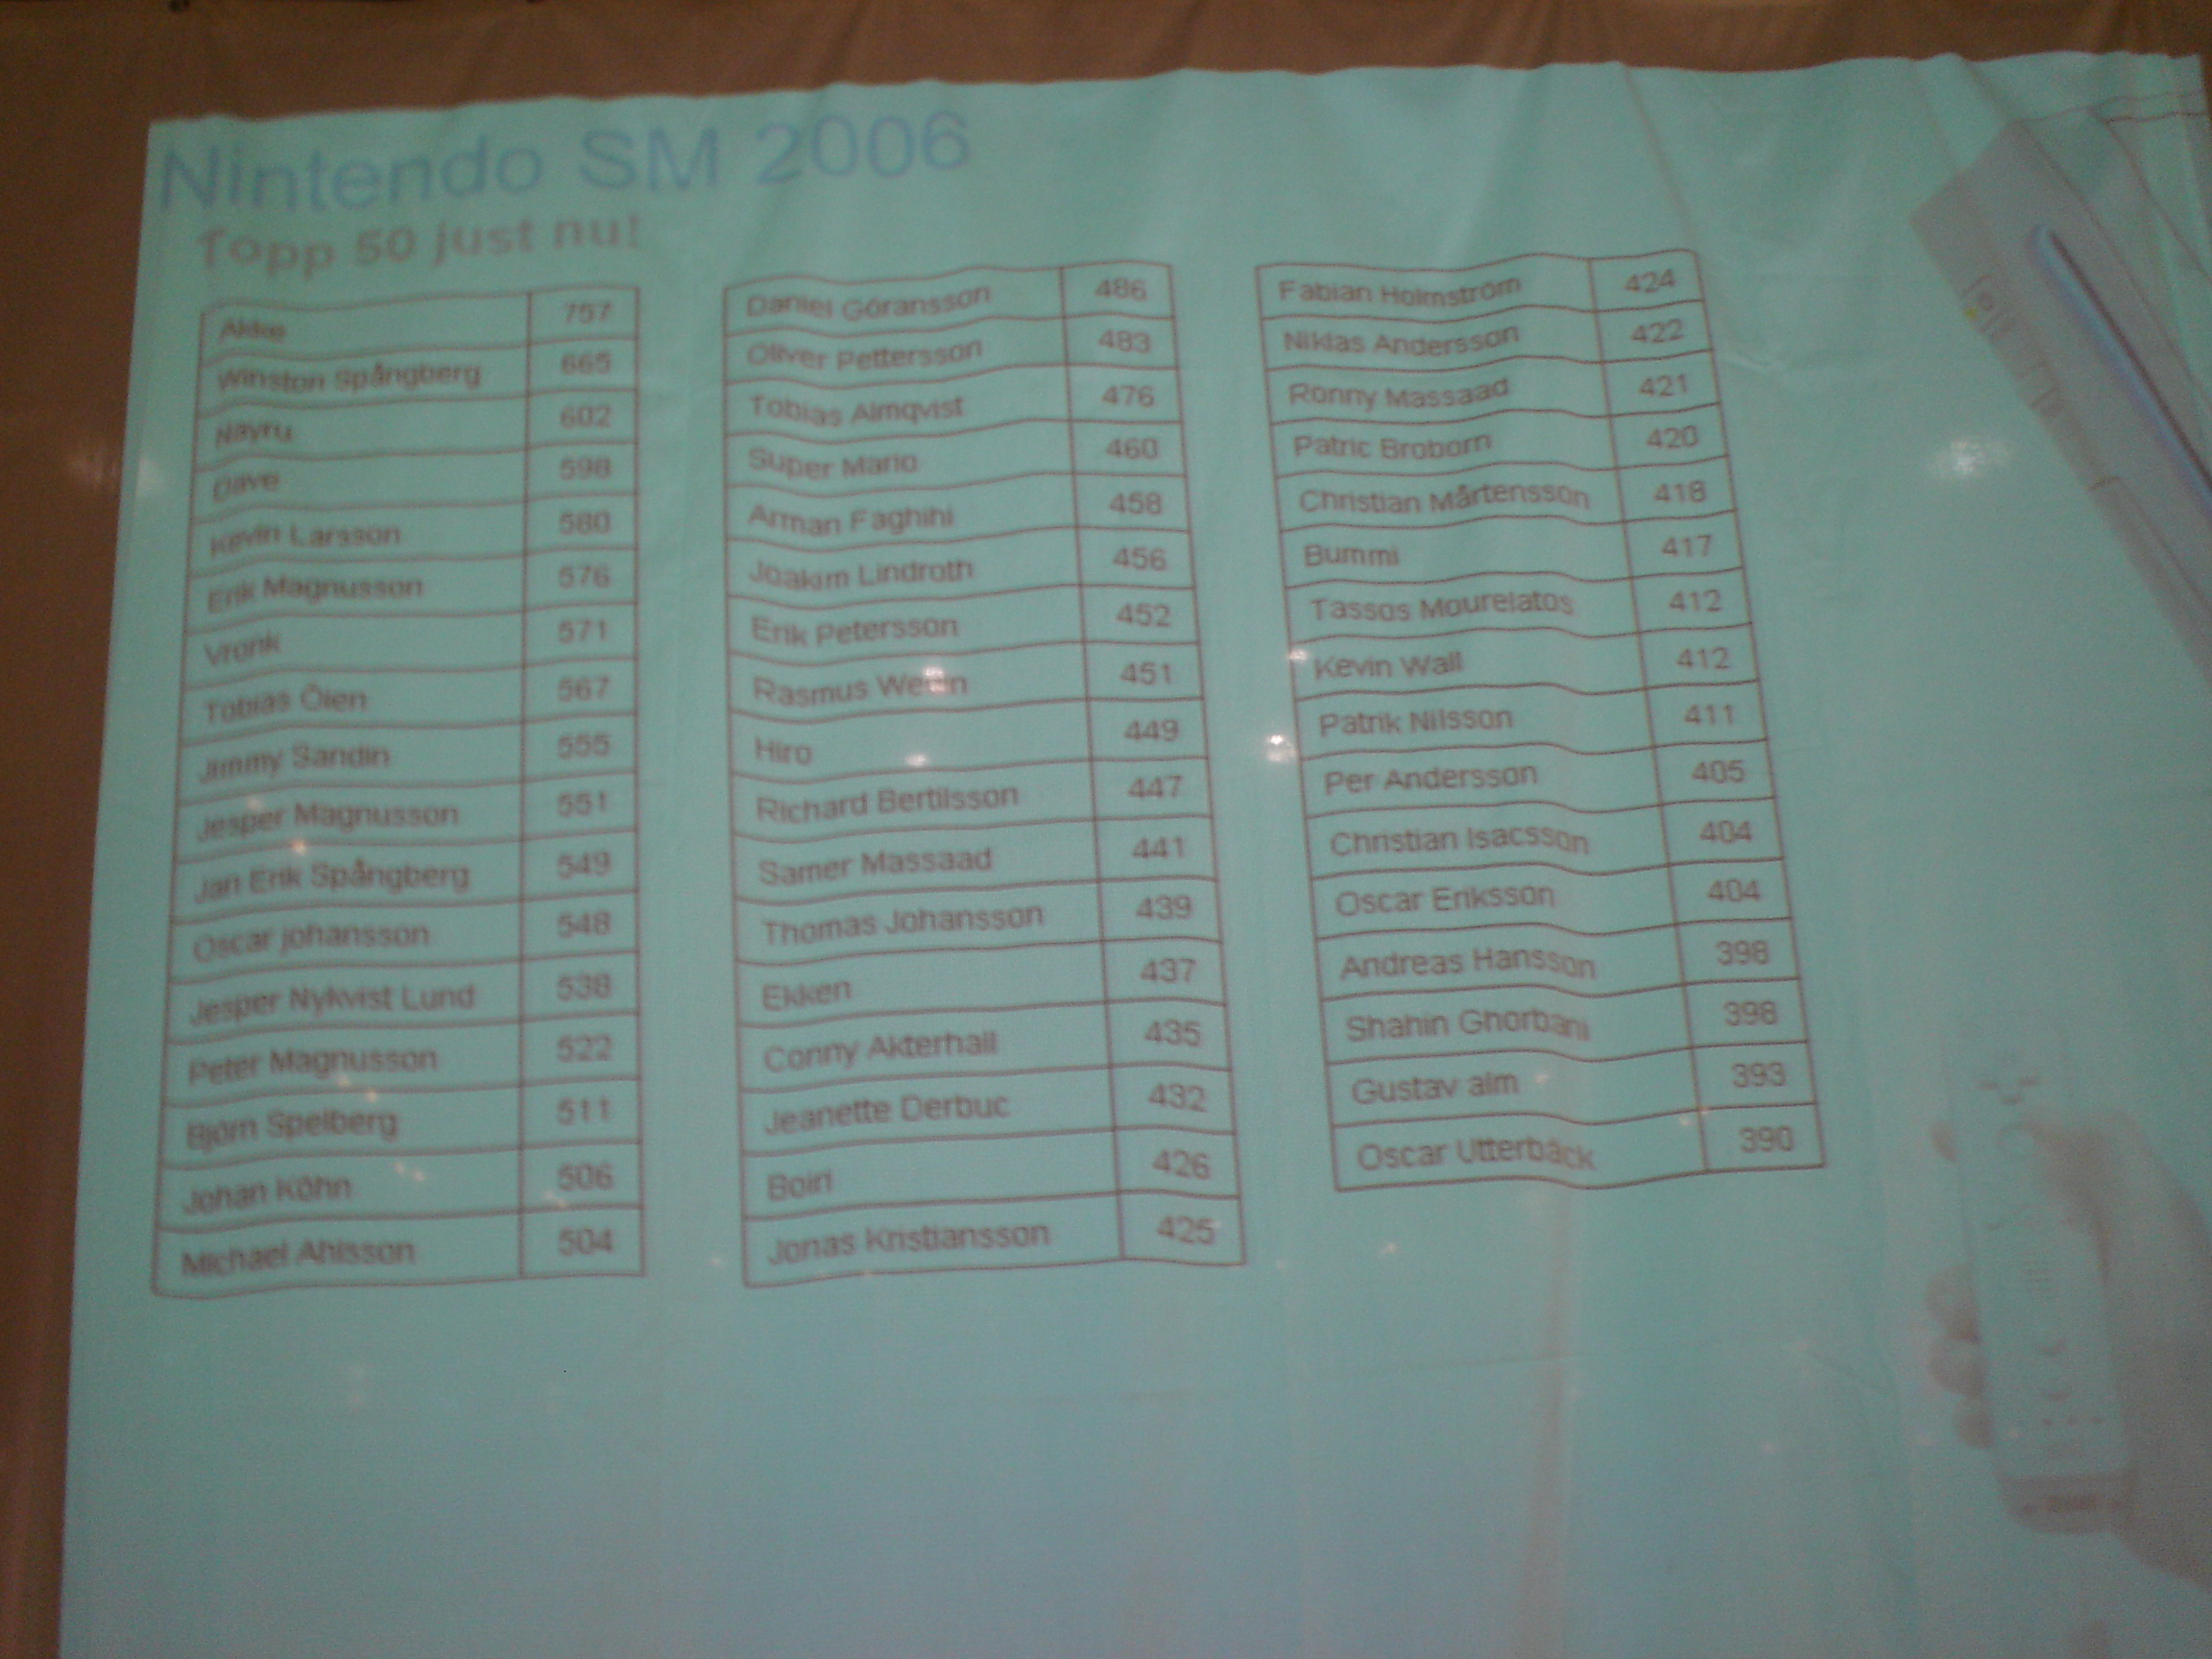 Nintendo SM 2006
Topp 50 just nu!
Akke 757
Winston Spångberg 665
Nayru 602
Dave 598
Kevin Larsson 580
Erik Magnusson 576
Vronk 571
Tobias Ölen 567
Jimmy Sandin 555
Jesper Magnusson 551
Jan Erik Spångberg 549
Oscar johansson 548
Jesper Nykvist Lund 538
Peter Magnusson 522
Björn Spelberg 511
Johan Köhn 506
Michael Ahlsson 504
Daniel Göransson 486
Oliver Pettersson 483
Tobias Almqvist 476
Super Mario 460
Arman Faghihi 458
Joakim Lindroth 456
Erik Petersson 452
Rasmus 451
Hiro 449
Richard Bertilsson 447
Samer Massaad 441
Thomas Johansson 439
Ekken 437
Conny Akterhall 435
Jeanette Derbuc 432
Boiri 426
Jonas Kristiansson 425
Fabian Holmström 424
Niklas Andersson 422
Ronny Massaad 421
Patric Broborn 420
Christian Mårtensson 418
Bummi 417
Tassos Mourelatos 412
Kevin Wall 412
Patrik Nilsson 411
Per Andersson 405
Christian Isacsson 404
Oscar Eriksson 404
Andreas Hansson 398
Shahin Ghorbani 398
Gustav alm 393
Oscar Utterbäck 390